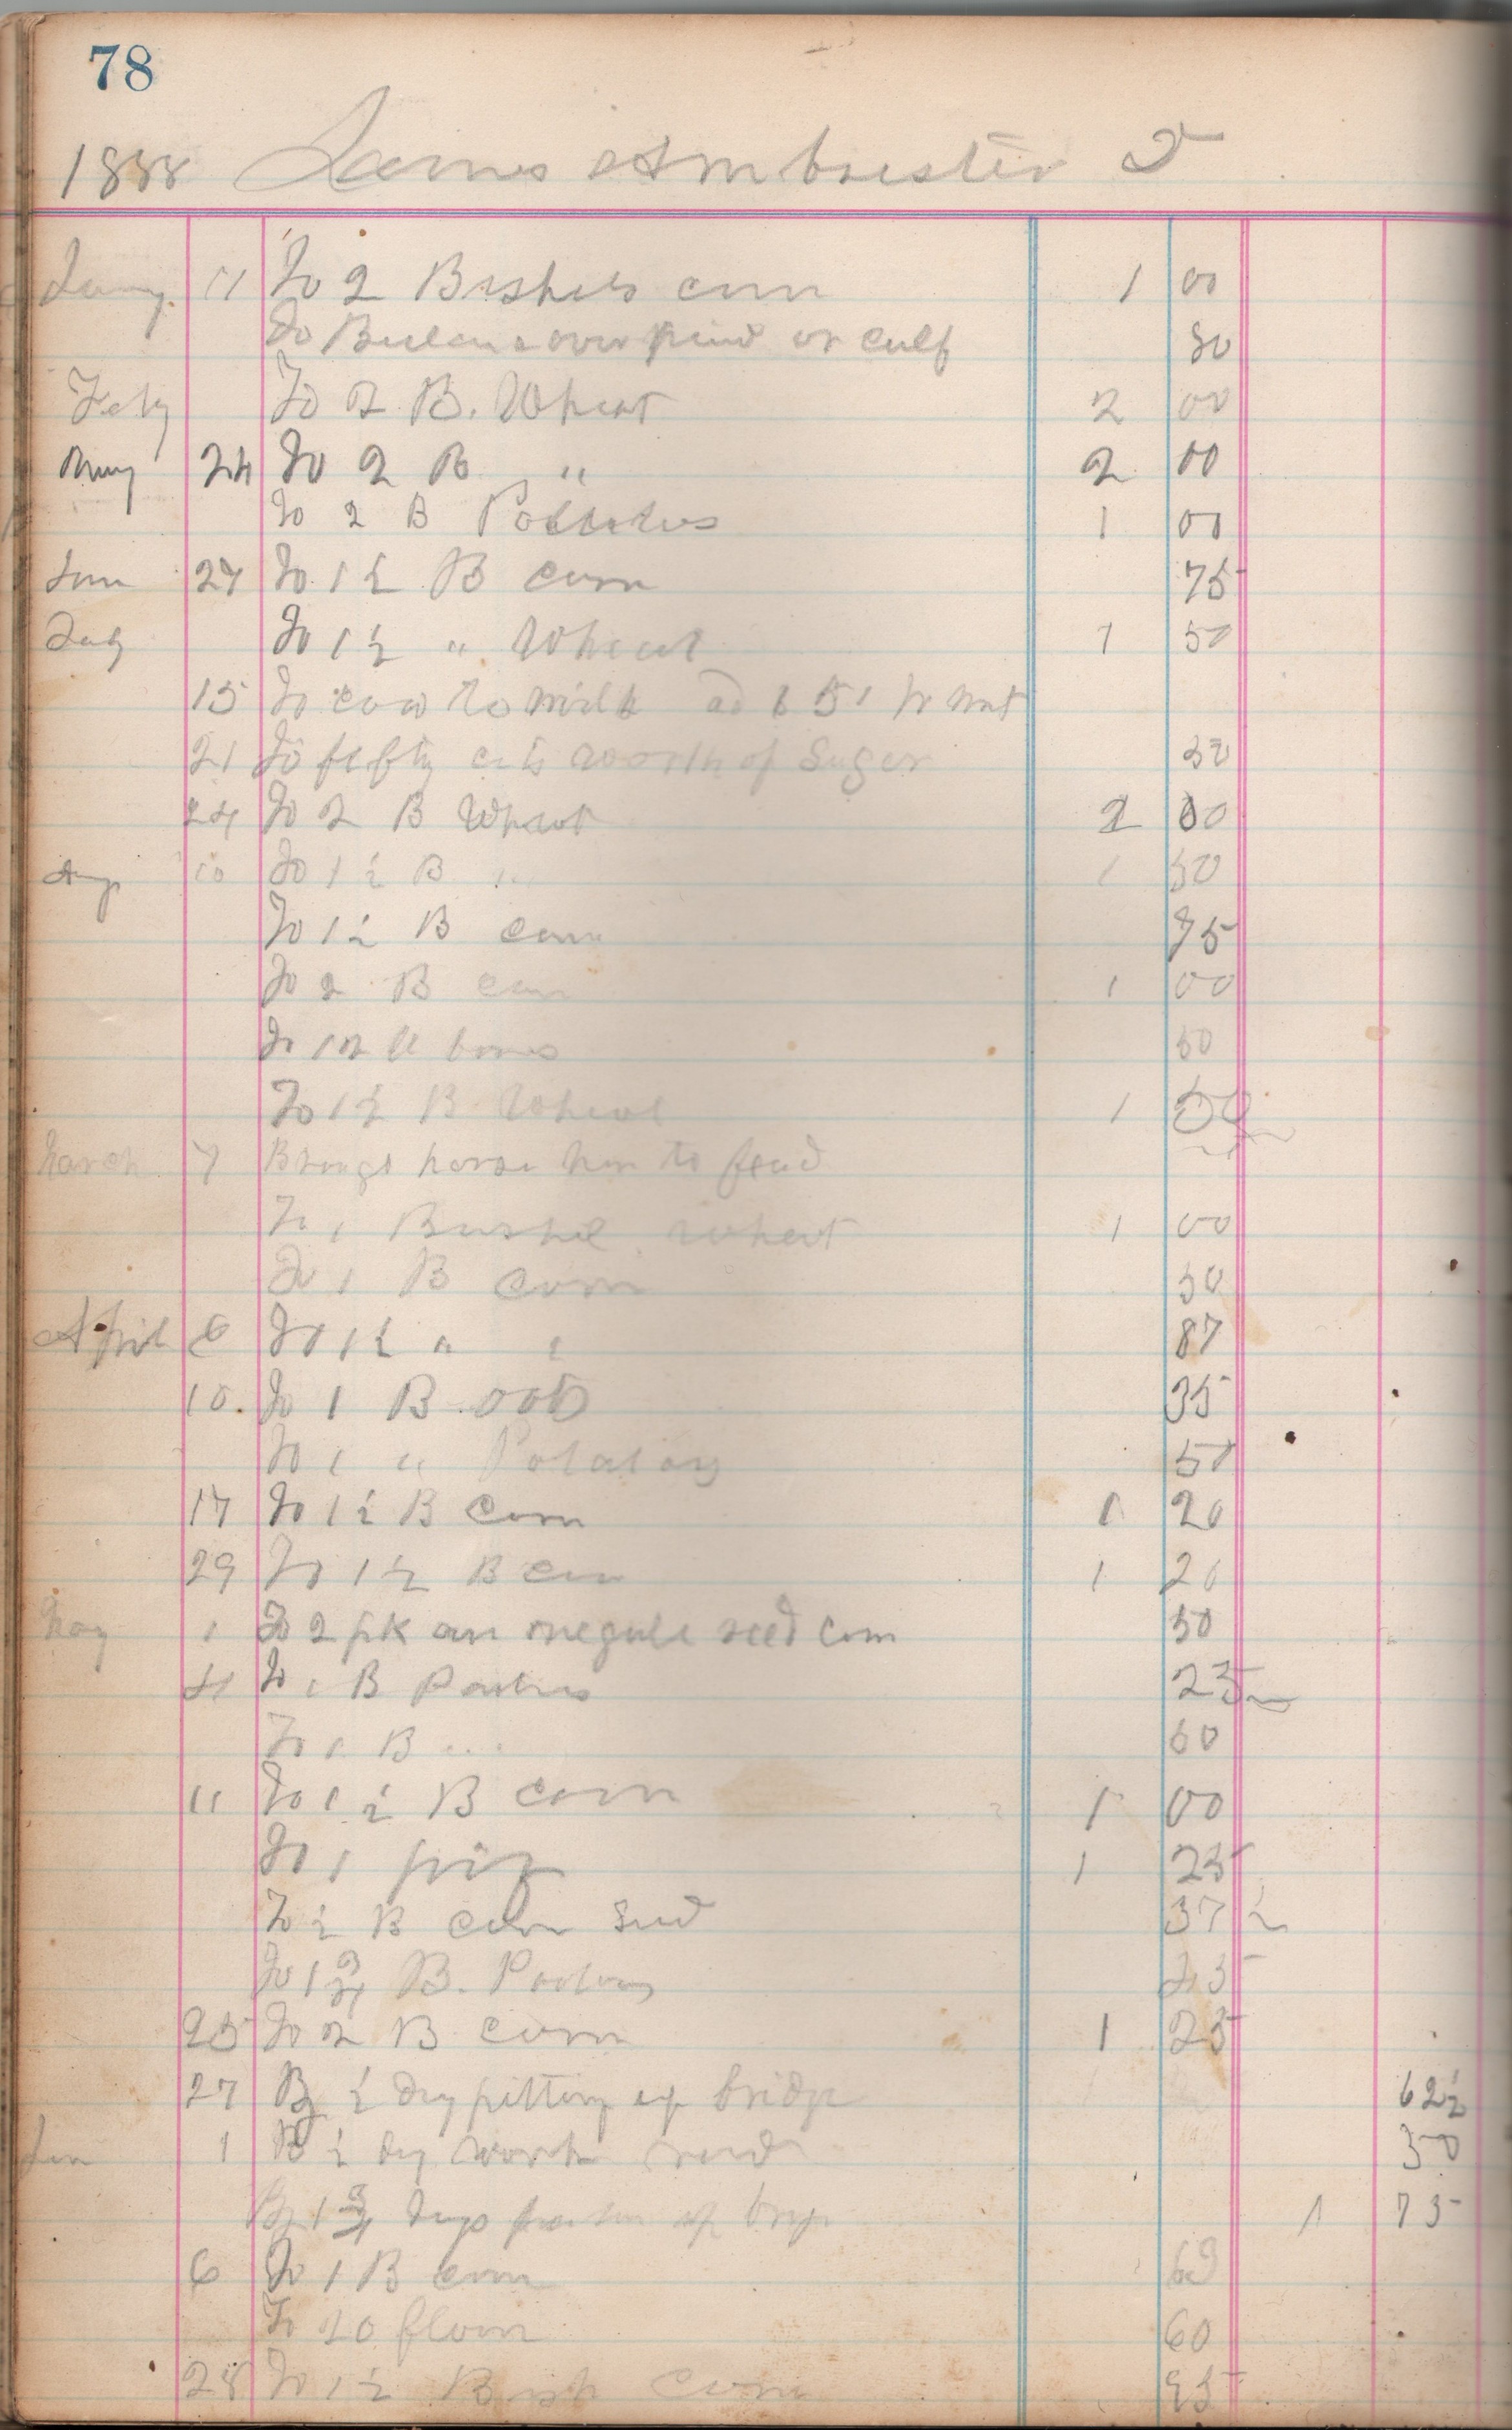 78
1888 James Armbrester D
11 To 2 Bushels corn 1 00
To over paid on calf 50
Feby To 2 B. Wheat 2 00
May 24 To 2 B " 2 00
To 2 B Potatoes 1 00
Jun 27 To 1½ B corn 75
July To 1½ " Wheat 1 50
15 To cow to milk
21 To fifty cts worth of Suger 50
24 To 2 B Wheat 2 00
Aug 10 To 1½ B " 1 50
To 1½ B corn 75
To 2 B corn 1 00
To 12 50
To 1½ B Wheat 1 50
March 7 horse to feed
To 1 Bushel wheat 1 00
To 1 B corn 50
April 6 To 1½ " " 87
10. To 1 B oats 35
To 1 " Potatoes 50
17 To 1½ B corn 1 20
29 To 1½ B corn 1 20
May 1 To 2 pk seed corn 50
4 To 1 B 25
To 1 B 60
11 To 1½ B corn 1 00
To 1 pig 1 25
To ½ B corn Seed 37½
To 1¾ B.
25 To 2 B corn 1 25
27 By ½ day up bridge 62½
Jun 1 B ½ day work road 50
By 1¾ days 1 75
6 To 1 B corn
To 20 flour 60
28 To 1½ Bush corn 95